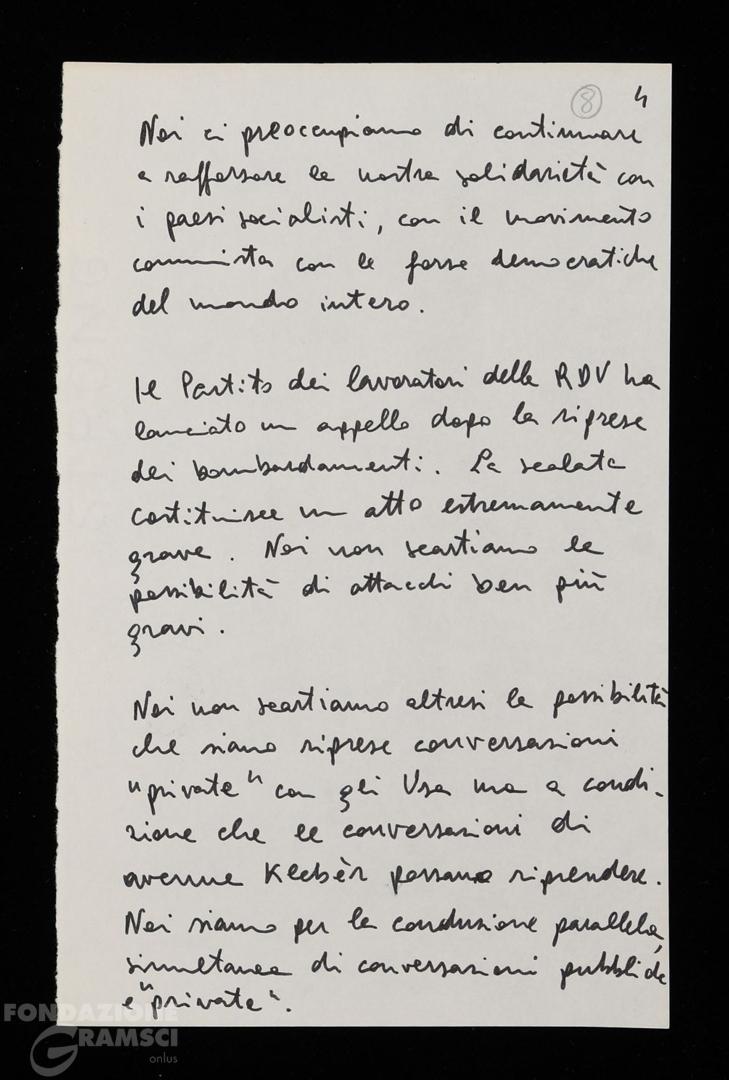 8 4
Noi ci preoccupiamo di continuare
e rafforzare la nostra solidarietà con
i paesi socialisti, con il movimento
comunista con le forze democratiche
del mondo intero.
Il Partito dei lavoratori della RDV ha
lanciato un appello dopo la ripresa
dei bombardamenti. La scalata
costituisce un atto estremamente
grave. Noi non scartiamo la
possibilità di attacchi ben più
gravi.
Noi non scartiamo altresì la possibilità
che siano riprese conversazioni
"private" con gli Usa ma a condi-
zione che le conversazioni di
avenue Klebèr possano riprendere.
Noi siamo per la conduzione parallela,
simultanea di conversazioni pubbliche
e "private".
FONDAZIONE
GRAMSCI
onlus